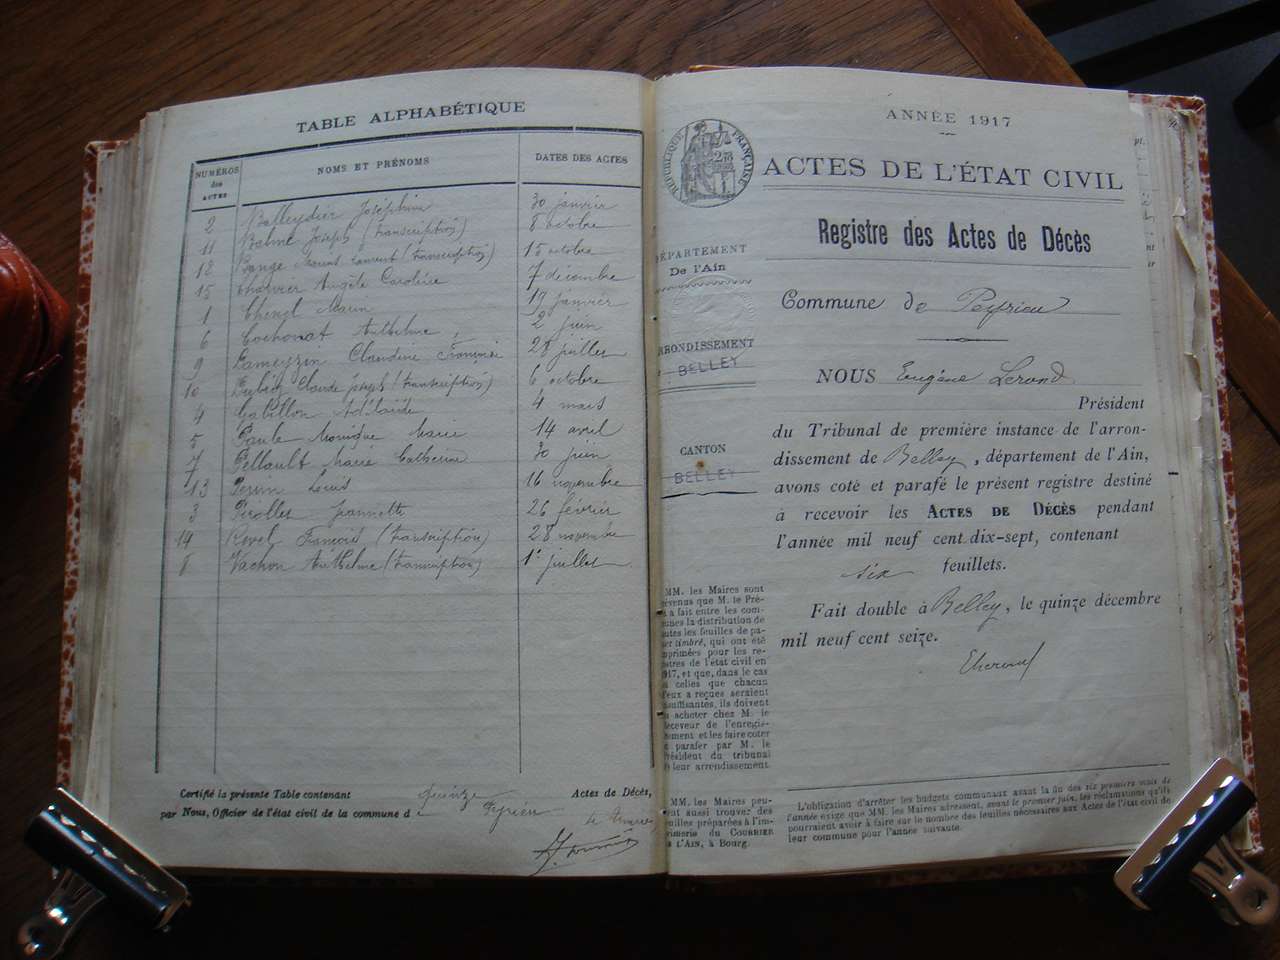 TABLE ALPHABÉTIQUE
NUMÉROS des ACTES
NOMS ET PRÉNOMS
DATES DES ACTES
2 Balleydier Joséphine 30 janvier
11 Balme Joseph (transcription) 8 octobre
12 Laurent (transcription) 15 octobre
15 Charvier Angèle Caroline 7 décembre
1 Marin 19 janvier
6 Cochonat Anthelme 2 juin
9 Dameyzin Claudine 28 juillet
10 Claude Joseph (transcription) 6 octobre
4 Gabillon Adélaïde 4 mars
5 Paule Monique Marie 14 avril
7 Pellault Marie Catherine 30 juin
13 Perrin Louis 16 novembre
3 Pirollet Jeannette 26 février
14 Revel François (transcription) 28 novembre
8 Vachon Anthelme (transcription) 1r juillet
Certifié la présente Table contenant quinze Actes de Décès,
par Nous, Officier de l'état civil de la commune d e Peyrieu
ANNÉE 1917
RÉPUBLIQUE FRANÇAISE
ACTES DE L'ÉTAT CIVIL
Registre des Actes de Décès
DÉPARTEMENT
De l'Ain
ARRONDISSEMENT
BELLEY
CANTON
BELLEY
Commune de Peyrieu
NOUS Eugène Lerond
Président
du Tribunal de première instance de l'arron-
dissement de Belley, département de l'Ain,
avons coté et parafé le présent registre destiné
à recevoir les ACTES DE DÉCÈS pendant
l'année mil neuf cent dix-sept, contenant
six feuillets.
Fait double à Belley, le quinze décembre
mil neuf cent seize.
MM. les Maires sont
prévenus que M. le Pré-
a fait entre les com-
munes la distribution de
toutes les feuilles de pa-
pier timbré, qui ont été
imprimées pour les re-
gistres de l'état civil en
1917, et que, dans le cas
celles que chacun
d'eux a reçues seraient
insuffisantes, ils doivent
acheter chez M. le
receveur de l'enregis-
trement et les faire coter
et parafer par M. le
Président du tribunal
de leur arrondissement
MM. les Maires peu-
vent aussi trouver des
feuilles préparées à l'im-
primerie du COURRIER
DE L'AIN, à Bourg.
L'obligation d'arrêter les budgets communaux avant la fin des six premiers mois de
l'année exige que MM. les Maires adressent, avant le premier juin, les réclamations qu'ils
pourraient avoir à faire sur le nombre des feuilles nécessaires aux Actes de l'état civil de
leur commune pour l'année suivante.